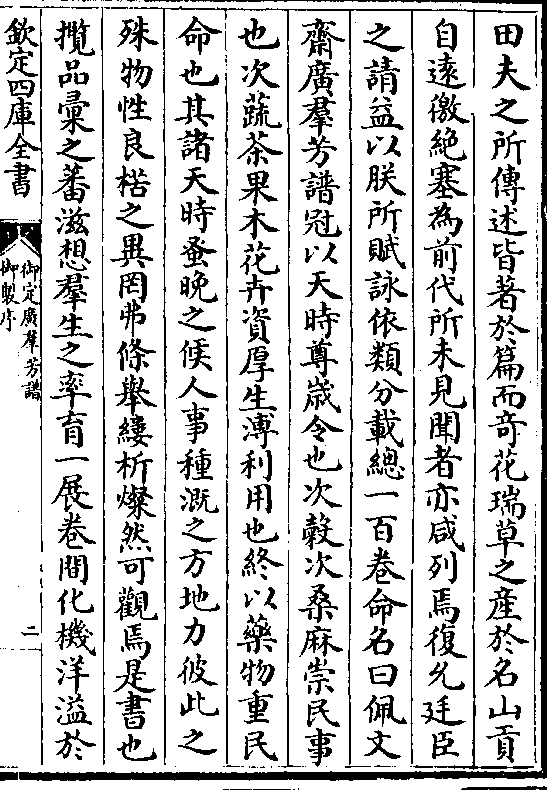 田夫之所傳述皆著於篇而奇花瑞草之産於名山貢
自遠徼絶塞為前代所未見聞者亦咸列焉復允廷臣
之請益以朕所賦詠依類分載總一百卷命名曰佩文
齋廣羣芳譜冠以天時尊嵗令也次穀次桑麻崇民事
也次蔬茶果木花卉資厚生溥利用也終以藥物重民
命也其諸天時蚤晚之候人事種溉之方地力彼此之
殊物性良楛之異罔弗條舉縷析燦然可觀焉是書也
攬品彚之蕃滋想羣生之率育一展卷間化機洋溢於
欽定四庫全書
御定廣羣芳譜
御製序
二